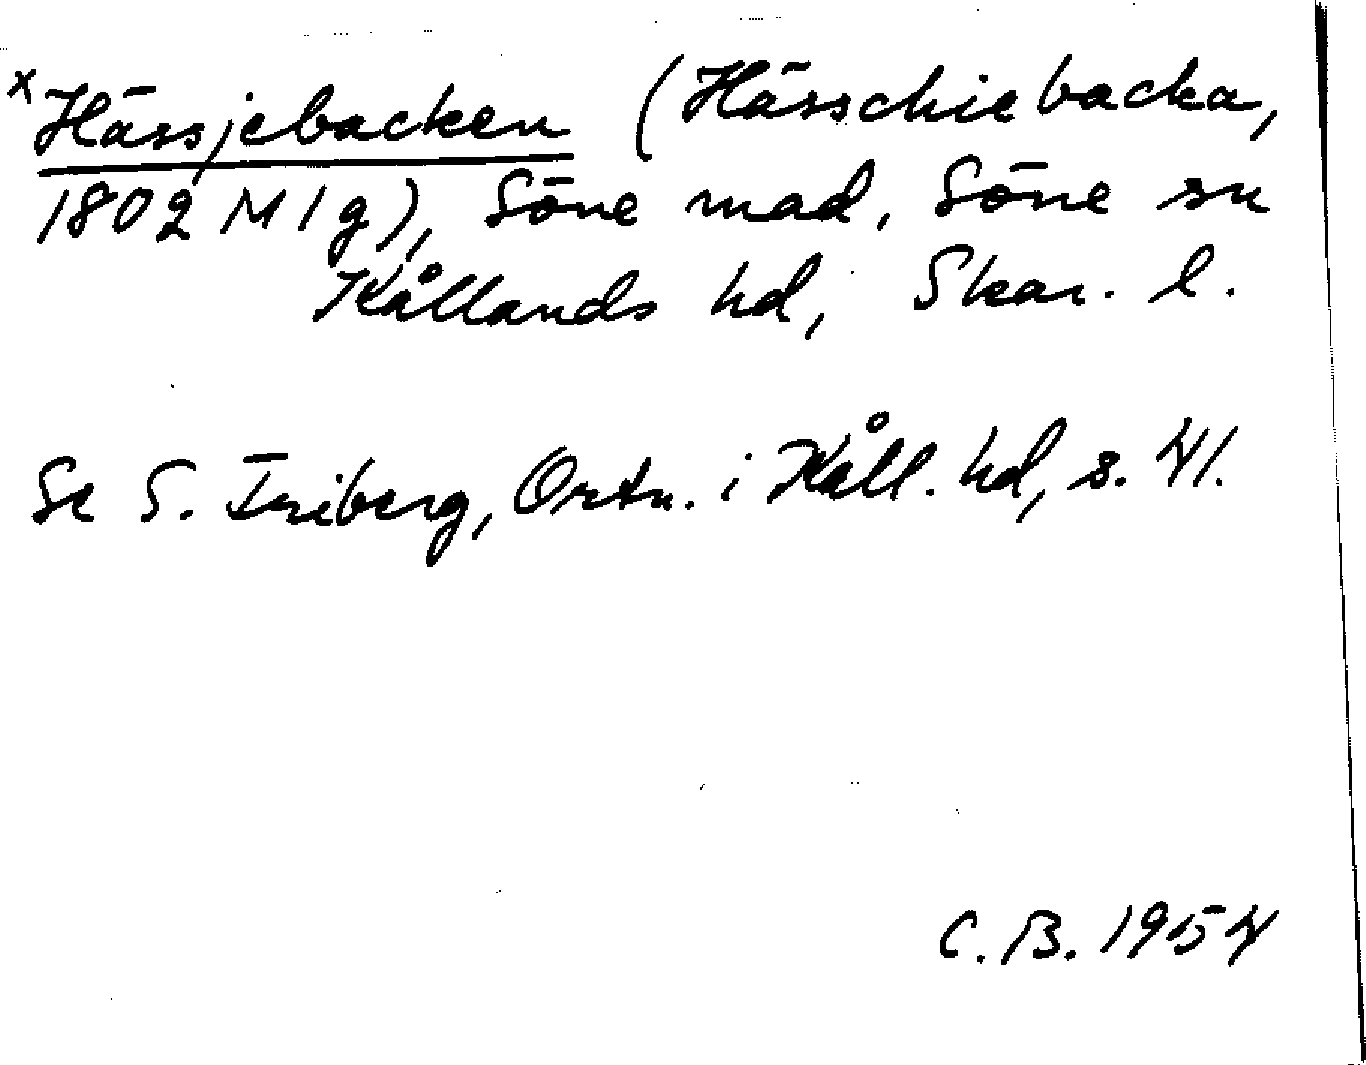 x Hässjebacken (Hässchiebacka,
1802 M 1 g), Söne mad, Söne sn
Kållands hd, Skar. l.
Se S. Friberg, Ortn. i Kåll. hd, s. 41.
C. B. 1954